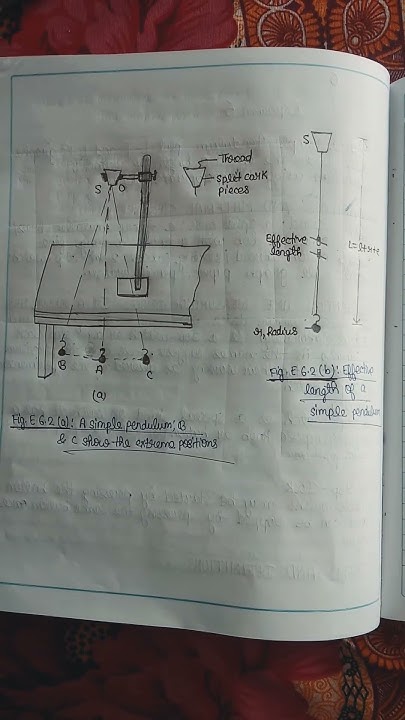 Thread
Split cark
pieces
S O
B A C
(a)
Fig. E 6.2 (a): A simple pendulum; B
& C show the extreme positions
S
Effective
length
L=l+r+e
r, Radius
Fig. E 6.2 (b): Effective
length of a
simple pendulum